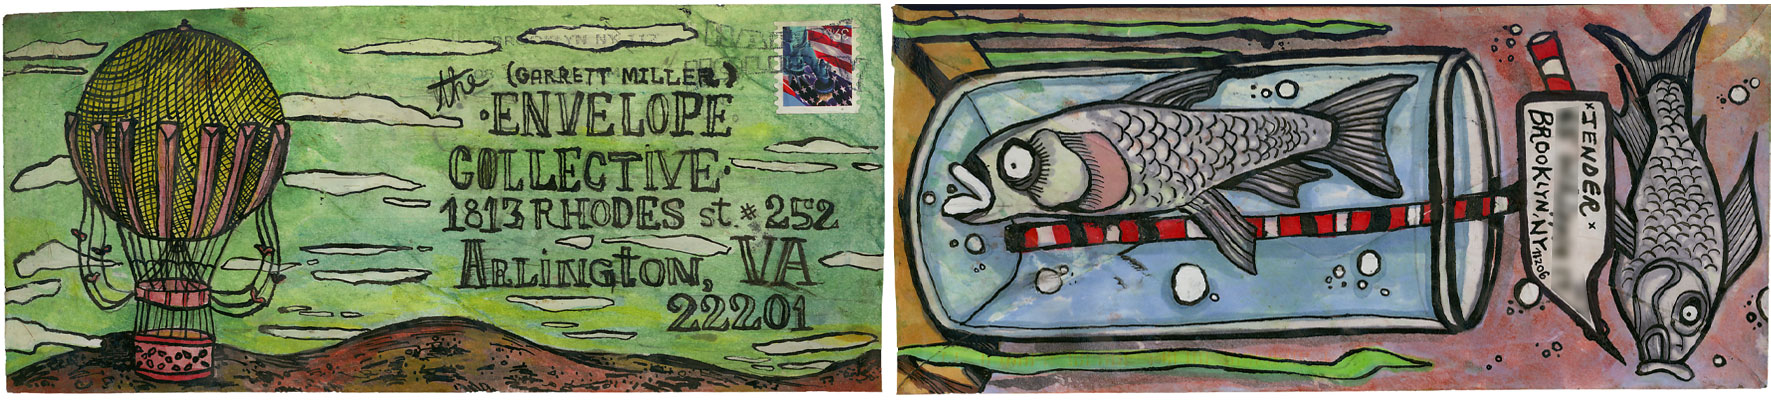 BROOKLYN NY 112
the (GARRETT MILLER)
·ENVELOPE·
COLLECTIVE·
1813 RHODES st. # 252
ARLINGTON, VA
22201
37
×JENDER×
BROOKLYN, NY 11206